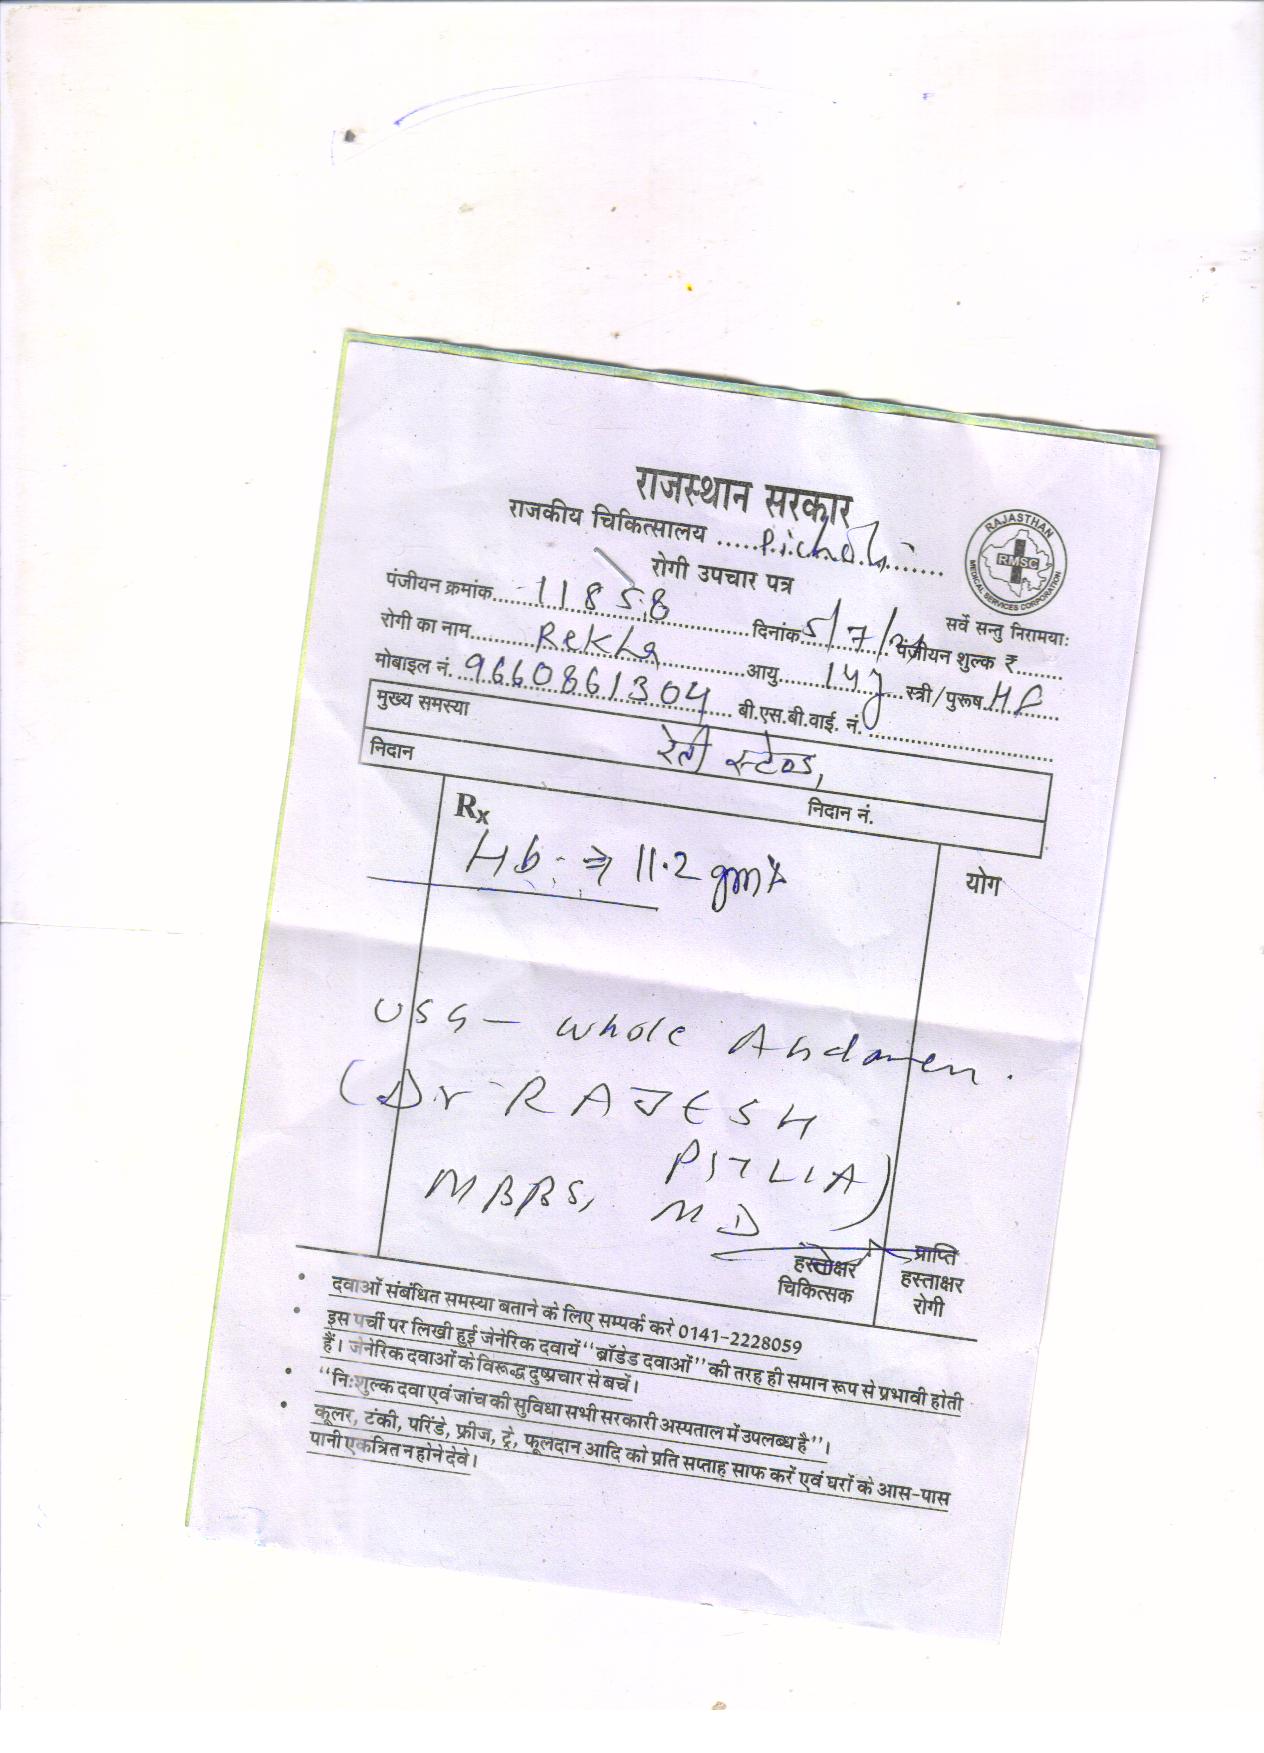 राजस्थान सरकार
राजकीय चिकित्सालय .....Picholi.......
रोगी उपचार पत्र
RAJASTHAN
RMSC
MEDICAL SERVICES CORPORATION
सर्वे सन्तु निरामयाः
पंजीयन क्रमांक 11858 दिनांक 5/7/ पंजीयन शुल्क ₹
रोगी का नाम Rekha आयु 14y स्त्री/पुरूष
मोबाइल नं. 9660861304 बी.एस.बी.वाई. नं.
मुख्य समस्या
निदान निदान नं.
Rx
योग
Hb → 11.2 gm%
USG - whole Abdomen.
(Dr RAJESH
PITLIA)
MBBS, MD
हस्ताक्षर
चिकित्सक
प्राप्ति
हस्ताक्षर
रोगी
• दवाओं संबंधित समस्या बताने के लिए सम्पर्क करे 0141-2228059
• इस पर्ची पर लिखी हुई जेनेरिक दवायें "ब्रॉडेड दवाओं" की तरह ही समान रूप से प्रभावी होती
हैं। जेनेरिक दवाओं के विरूद्ध दुष्प्रचार से बचें।
• "निःशुल्क दवा एवं जांच की सुविधा सभी सरकारी अस्पताल में उपलब्ध है"।
• कूलर, टंकी, परिंडे, फ्रीज, ट्रे, फूलदान आदि को प्रति सप्ताह साफ करें एवं घरों के आस-पास
पानी एकत्रित न होने देवे।